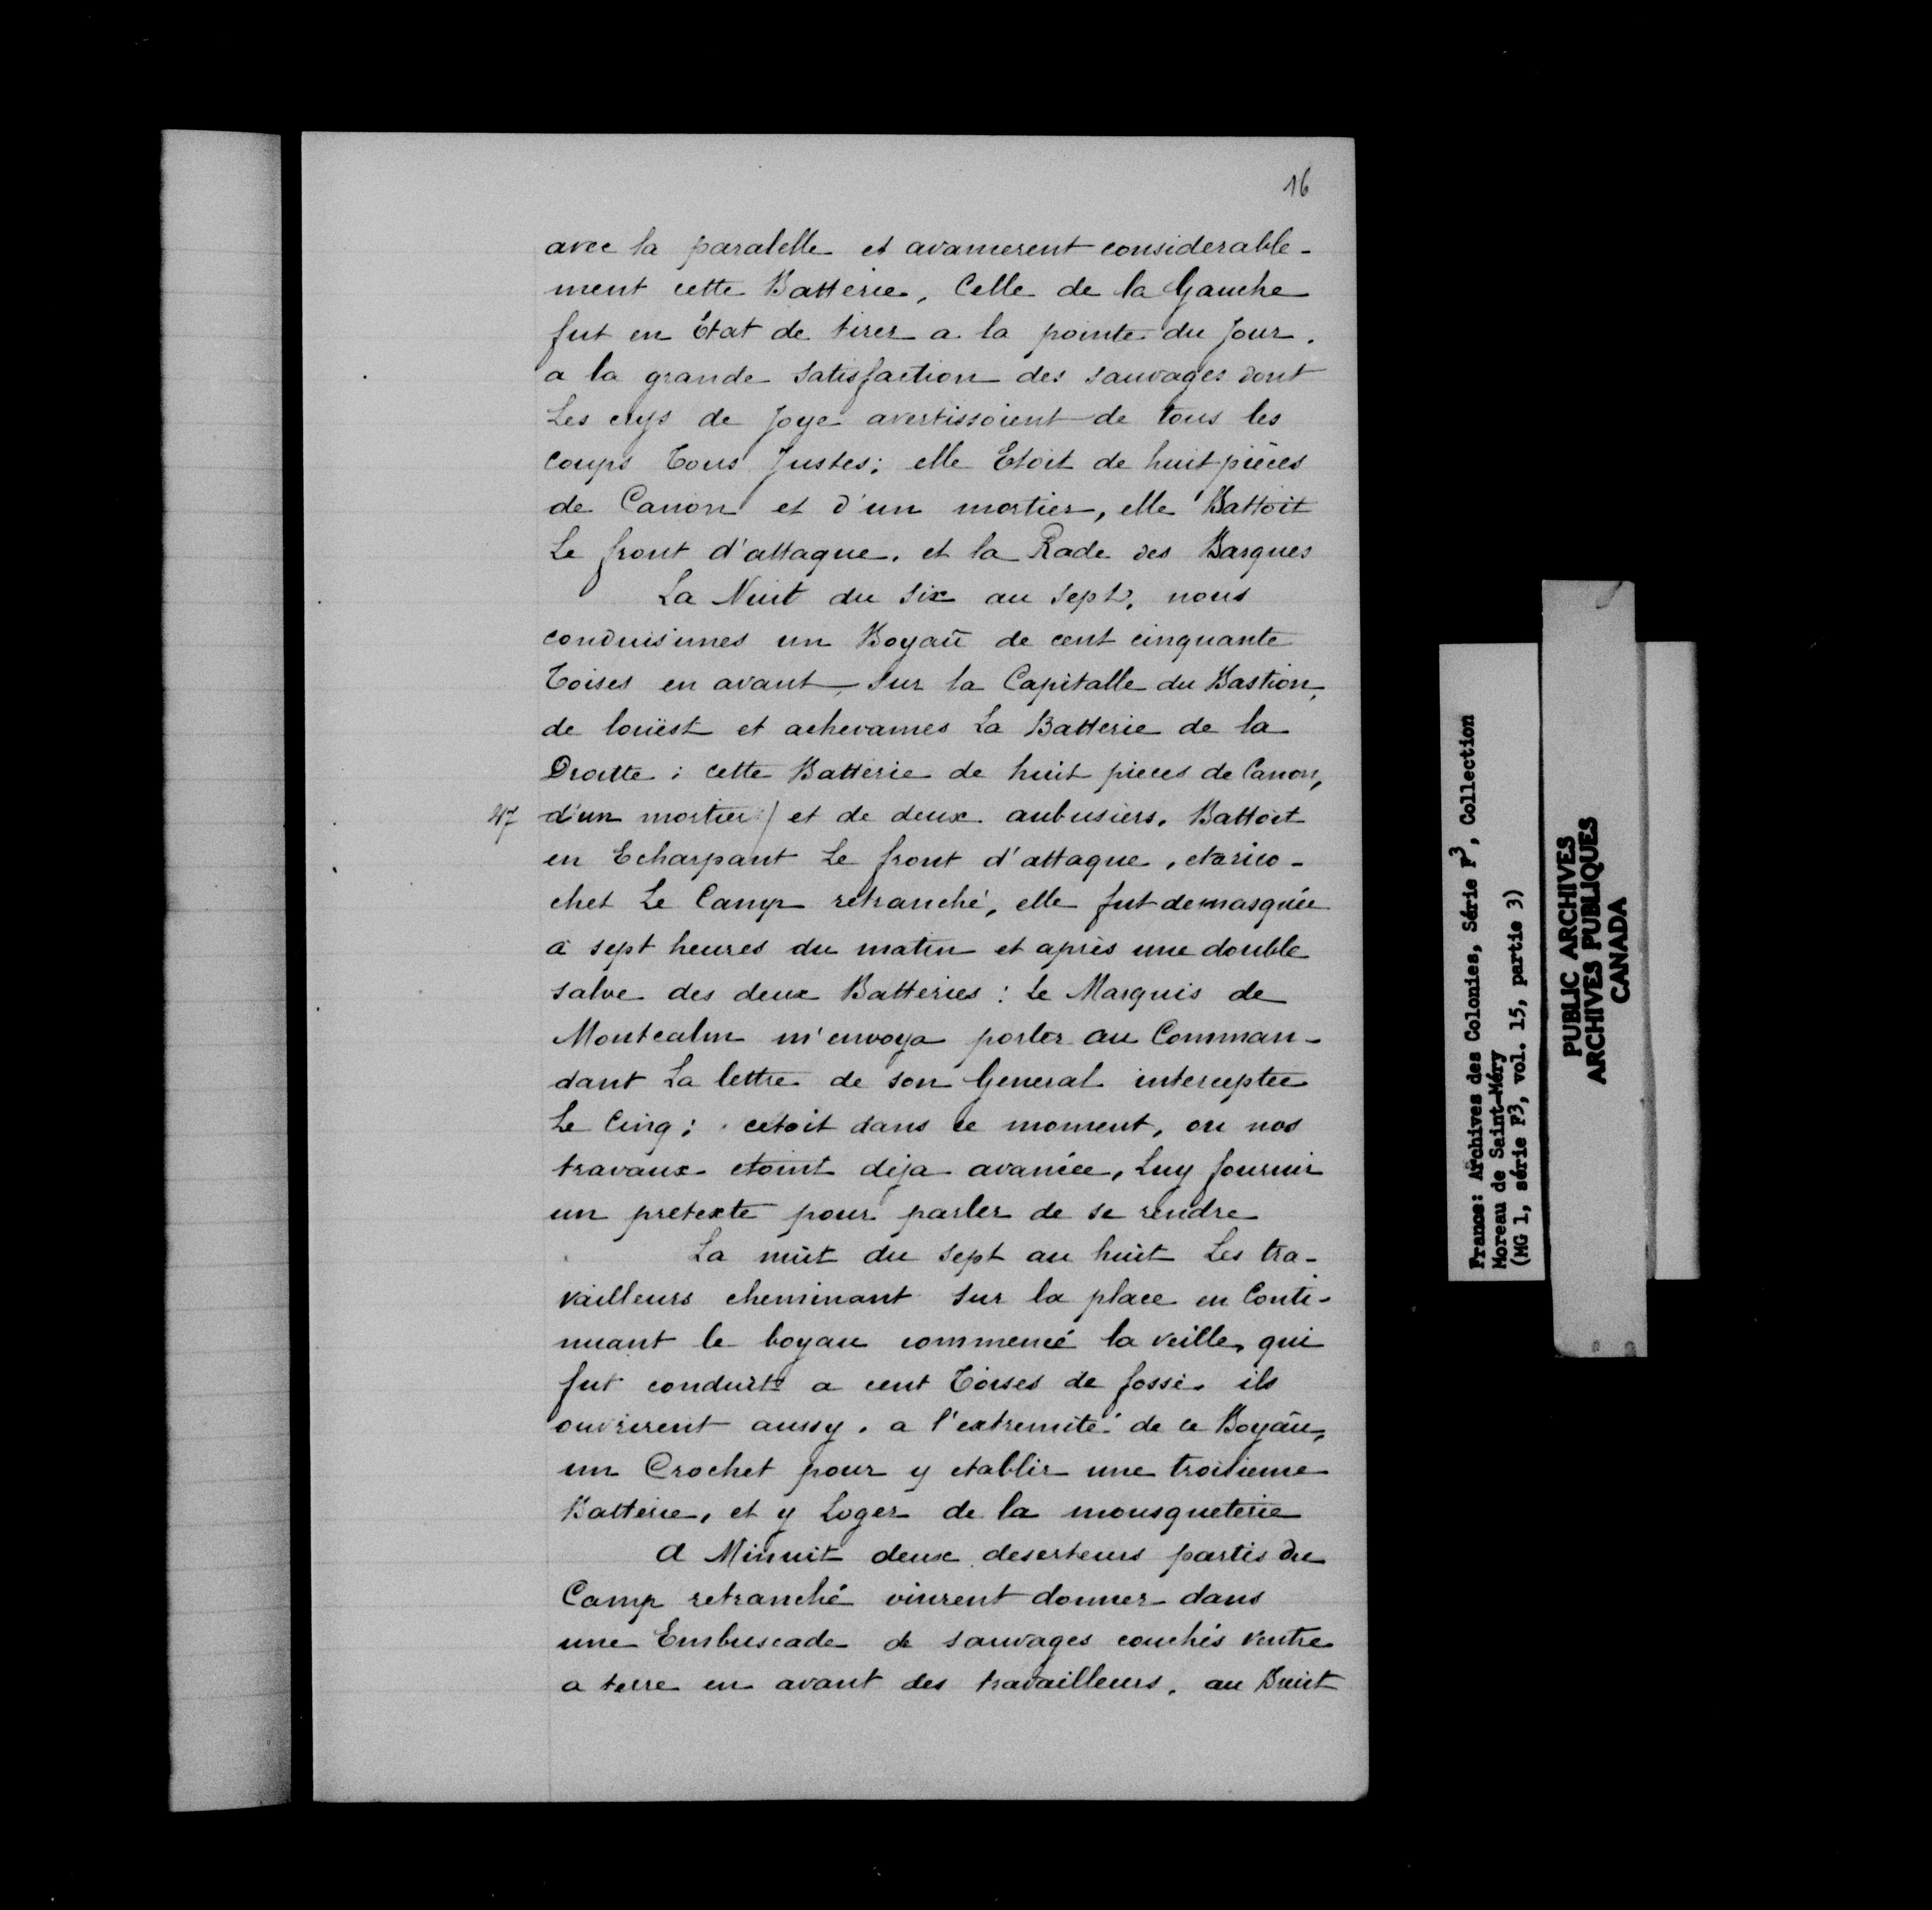 16
avec la paralelle et avancerent considerable-
ment cette Batterie, Celle de la Gauche
fut en Etat de tirer a la pointe du Jour.
a la grande satisfaction des sauvages dont
Les crys de Joye avertissoient de tous les
coups Tous Justes; elle Etoit de huit pièces
de Canon et d'un mortier, elle Battoit
Le front d'attaque. et la Rade des Barques
La Nuit du Six au Sept, nous
conduisimes un Boyaū de cent cinquante
Toises en avant sur la Capitalle du Bastion
de loüest et achevames La Batterie de la
Droitte; cette Batterie de huit pieces de Canon,
47 d'un mortier/ et de deux aubusiers. Battoit
en Echarpant Le front d'attaque, et a rico-
chet Le Camp retranché, elle fut demasquée
à sept heures du matin et après une double
salve des deux Batteries: Le Marquis de
Montcalm m'envoya porter au Comman-
dant La lettre de son General interceptée
Le Cinq; cetoit dans ce moment, ou nos
travaux etoint déja avancée, Luy fournir
un pretexte pour parler de se rendre
La nuit du Sept au huit Les tra-
vailleurs cheminant sur la place en Conti-
nuant le boyau commencé la veille, qui
fut conduit a cent Toises de fossé. ils
ouvrirent aussy. a l'extremité de ce Boyāu,
un Crochet pour y etablir une troisieme
Batterie, et y Loger de la mousqueterie
A Minuit deux deserteurs partis du
Camp retranché vinrent donner dans
une Embuscade de sauvages couchés ventre
a terre en avant des travailleurs. au Bruit
France: Archives des Colonies, Série F3, Collection
Moreau de Saint-Méry
(MG 1, série F3, vol. 15, partie 3)
PUBLIC ARCHIVES
ARCHIVES PUBLIQUES
CANADA